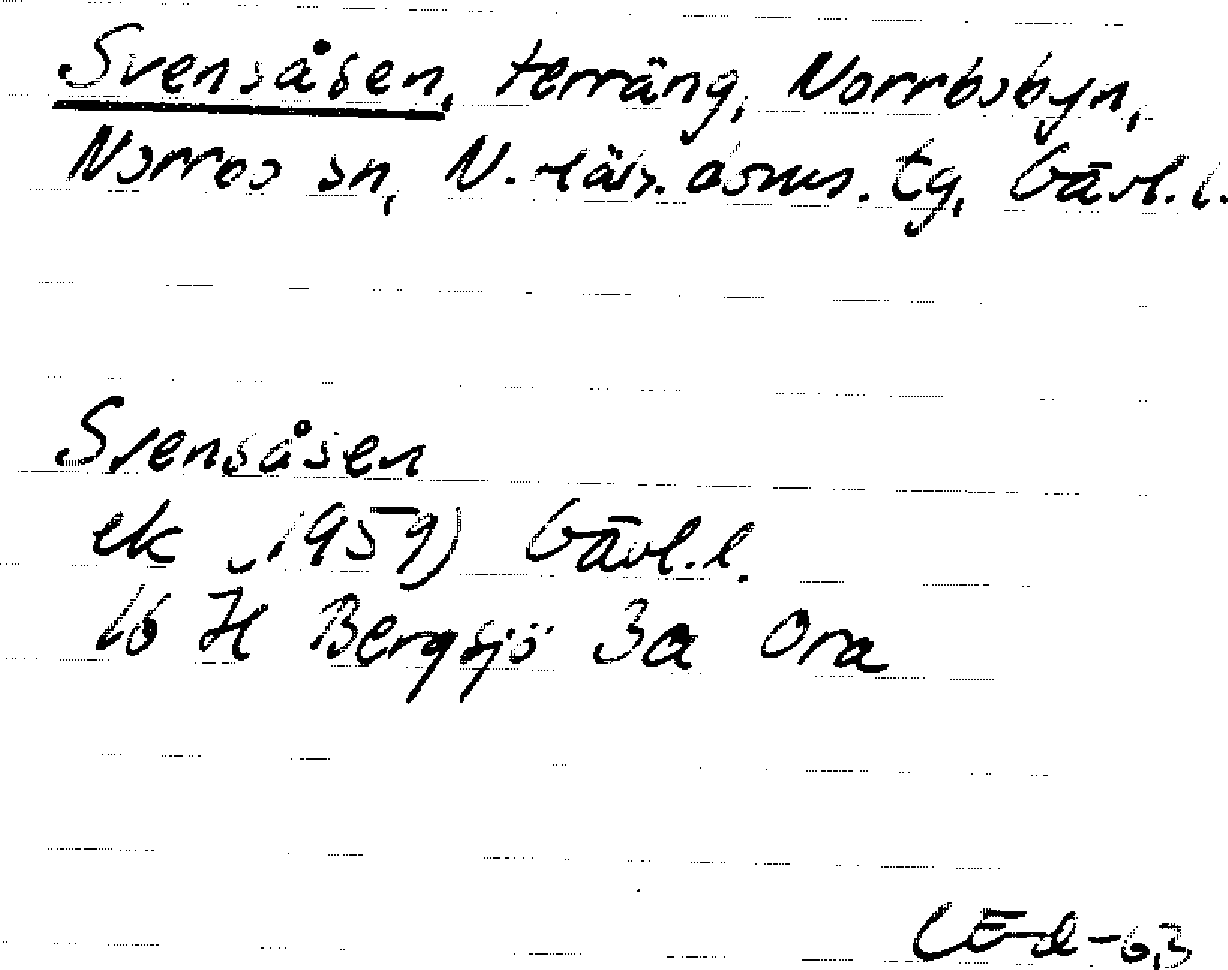 Svensåsen, terräng, Norrbobyn,
Norrbo sn, N. Häls. domss. tg, Gävl. l.
Svensåsen
ek (1959) Gävl. l.
16 H Bergsjö 3a Ora